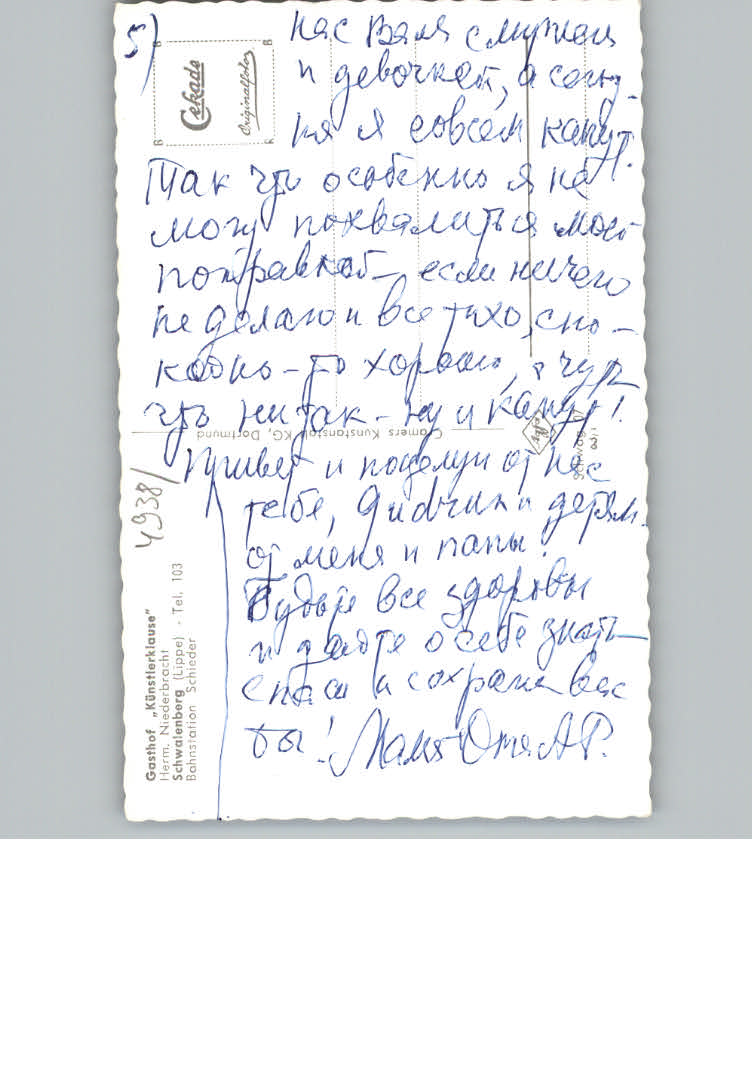 5)
нас Валя с мужем
и девочкой, а сегод-
ня я совсем капут.
Так что особенно я не
могу похвалиться моей
поправкой — если ничего
не делаю и все тихо, спо-
койно — то хорошо, а чуть
что не так — ну и капут!
Привет и поцелуи от нас
тебе, и детям
от меня и папы!
Будьте все здоровы
и дайте о себе знать
спаси и сохрани вас
Мама
4938/
Cekade
Originalfoto
Cramers Kunstanstalt KG, Dortmund
Gasthof „Künstlerklause"
Herm. Niederbracht
Schwalenberg (Lippe) · Tel. 103
Bahnstation Schieder